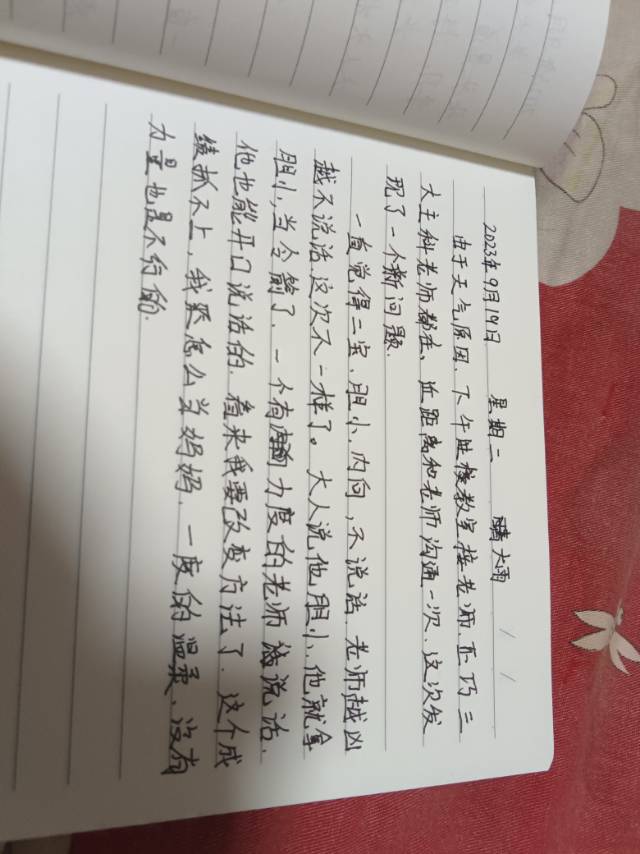 2023年9月19日 星期二 大雨
由于天气原因、下午进楼教室接老师、正巧三
大主科老师都在、近距离和老师沟通一次、这次发
现了一个新问题.
一直觉得二宝、胆小、内向，不说话、老师越凶
越不说话、这次不一样了。大人说他胆小、他就拿
胆小,当令箭了、一个有力度的老师说话、
他也能开口说话的、看来我要改变方法了、这个成
绩抓不上，我张怎么当妈妈、一度的温柔、没有
力量也是不行的.